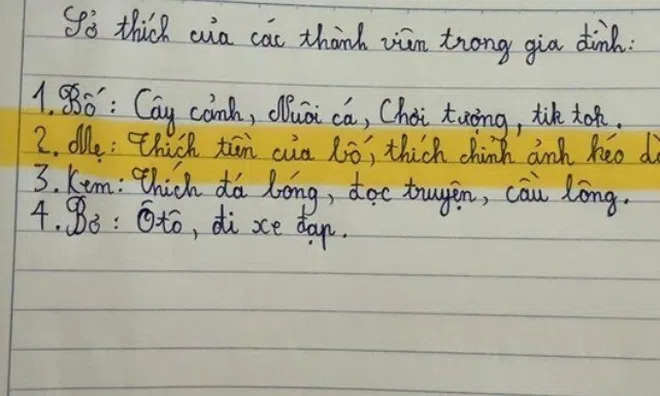 Sở thích của các thành viên trong gia đình:
1. Bố: Cây cảnh, Nuôi cá, Chơi tượng, tik tok.
2. Mẹ: Thích tiền của bố, thích chỉnh ảnh kéo
3. Kem: Thích đá bóng, đọc truyện, cầu lông.
4. Bo: Ôtô, đi xe đạp.